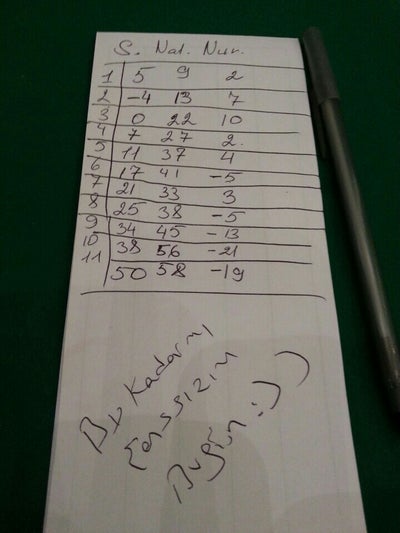 S. Nat. Nur.
1 5 9 2
2 -4 13 7
3 0 22 10
4 7 27 2
5 11 37 4
6 17 41 -5
7 21 33 3
8 25 38 -5
9 34 45 -13
10 38 56 -21
11 50 58 -19
Bu Kadarmı
Bugün :))